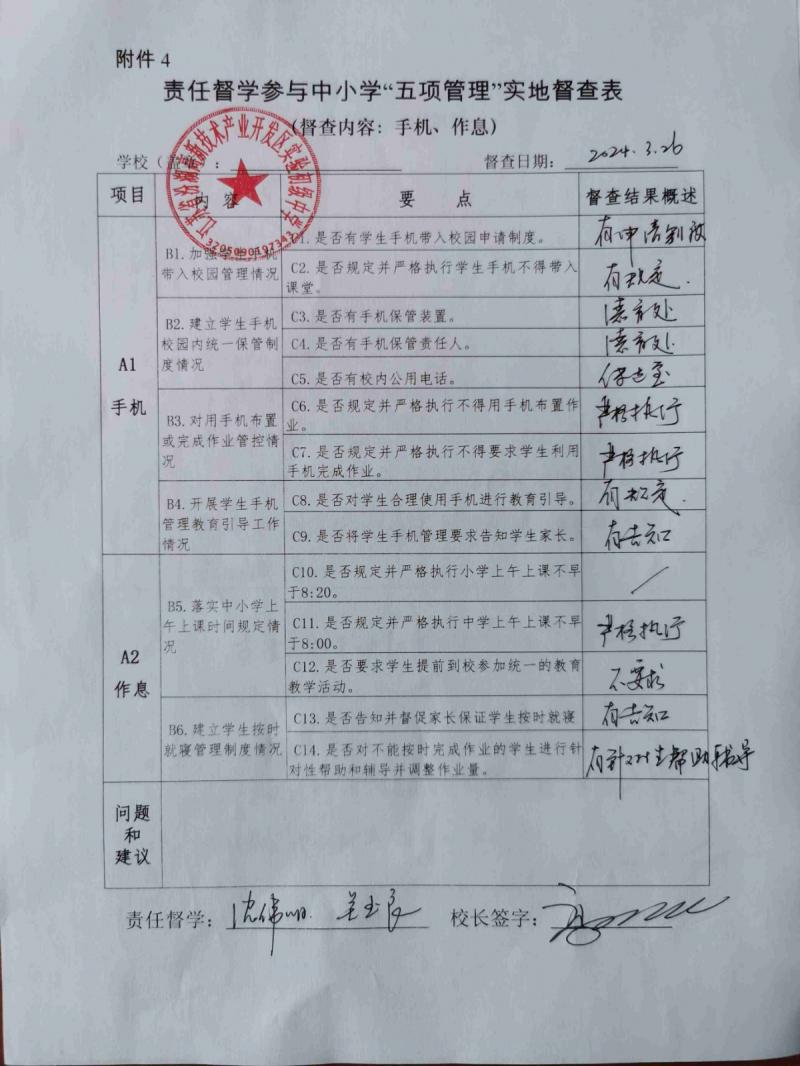 附件 4
责任督学参与中小学“五项管理”实地督查表
(督查内容: 手机、作息)
学校(盖章): 督查日期: 2024.3.26
技术产业开发区实验初级中学
3205090197343
项目 内容 要点 督查结果概述
A1
手机
B1.加强学生手机
带入校园管理情况
C1.是否有学生手机带入校园申请制度。
有申请制度
C2.是否规定并严格执行学生手机不得带入
课堂。
有规定.
B2.建立学生手机
校园内统一保管制
度情况
C3.是否有手机保管装置。
德育处
C4.是否有手机保管责任人。
德育处.
C5.是否有校内公用电话。
B3.对用手机布置
或完成作业管控情
况
C6.是否规定并严格执行不得用手机布置作
业。
严格执行
C7.是否规定并严格执行不得要求学生利用
手机完成作业。
严格执行
B4.开展学生手机
管理教育引导工作
情况
C8.是否对学生合理使用手机进行教育引导。
有规定.
C9.是否将学生手机管理要求告知学生家长。
有告知
A2
作息
B5.落实中小学上
午上课时间规定情
况
C10.是否规定并严格执行小学上午上课不早
于8:20。
/
C11.是否规定并严格执行中学上午上课不早
于8:00。
严格执行
C12.是否要求学生提前到校参加统一的教育
教学活动。
不要求
B6.建立学生按时
就寝管理制度情况
C13.是否告知并督促家长保证学生按时就寝
有告知
C14.是否对不能按时完成作业的学生进行针
对性帮助和辅导并调整作业量。
有针对性帮助指导
问题
和
建议
责任督学: 沈伟明. 吴玉良 校长签字: